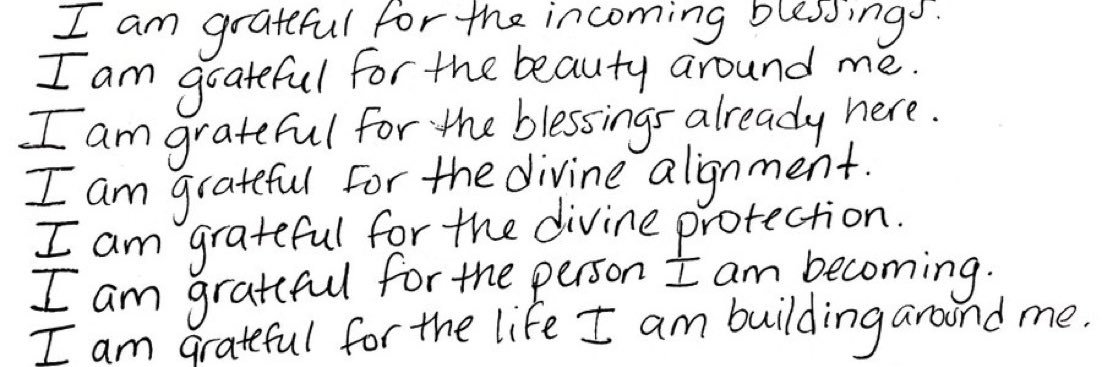 I am grateful for the incoming blessings.
I am grateful for the beauty around me.
I am grateful for the blessings already here.
I am grateful for the divine alignment.
I am grateful for the divine protection.
I am grateful for the person I am becoming.
I am grateful for the life I am building around me.